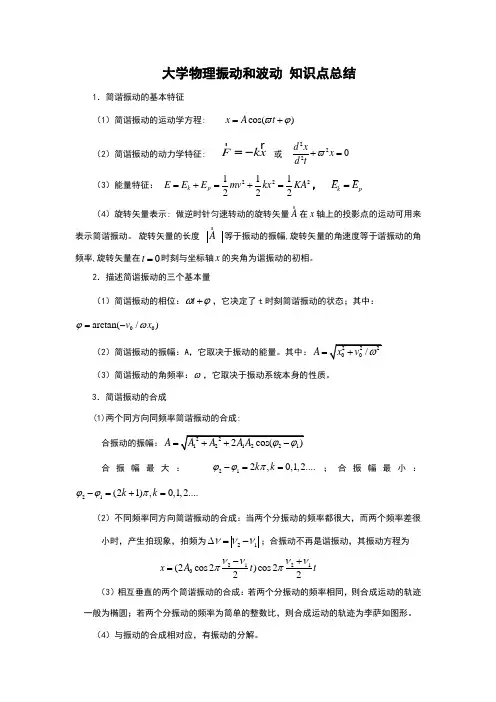 大学物理振动和波动 知识点总结
1．简谐振动的基本特征
（1）简谐振动的运动学方程： x = A cos(ϖt + φ)
（2）简谐振动的动力学特征： F = −kx 或 d²x/d²t + ϖ²x = 0
（3）能量特征： E = E_k + E_p = 1/2 mv² + 1/2 kx² = 1/2 KA²， E̅_k = E̅_p
（4）旋转矢量表示: 做逆时针匀速转动的旋转矢量 A 在 x 轴上的投影点的运动可用来
表示简谐振动。 旋转矢量的长度 |A| 等于振动的振幅,旋转矢量的角速度等于谐振动的角
频率,旋转矢量在 t = 0 时刻与坐标轴 x 的夹角为谐振动的初相。
2．描述简谐振动的三个基本量
（1）简谐振动的相位：ωt + φ ，它决定了 t 时刻简谐振动的状态；其中：
φ = arctan(−v₀ / ωx₀)
（2）简谐振动的振幅：A，它取决于振动的能量。其中：A = √(x₀² + v₀²/ω²)
（3）简谐振动的角频率：ϖ ，它取决于振动系统本身的性质。
3．简谐振动的合成
(1)两个同方向同频率简谐振动的合成:
合振动的振幅：A = √(A₁² + A₂² + 2A₁A₂ cos(φ₂ − φ₁))
合振幅最大： φ₂ − φ₁ = 2kπ, k = 0,1,2.... ；合振幅最小：
φ₂ − φ₁ = (2k + 1)π, k = 0,1,2....
（2）不同频率同方向简谐振动的合成：当两个分振动的频率都很大，而两个频率差很
小时，产生拍现象，拍频为 Δν = |ν₂ − ν₁|；合振动不再是谐振动，其振动方程为
x = (2A₀ cos 2π (ν₂ − ν₁)/2 t) cos 2π (ν₂ + ν₁)/2 t
（3）相互垂直的两个简谐振动的合成：若两个分振动的频率相同，则合成运动的轨迹
一般为椭圆；若两个分振动的频率为简单的整数比，则合成运动的轨迹为李萨如图形。
（4）与振动的合成相对应，有振动的分解。